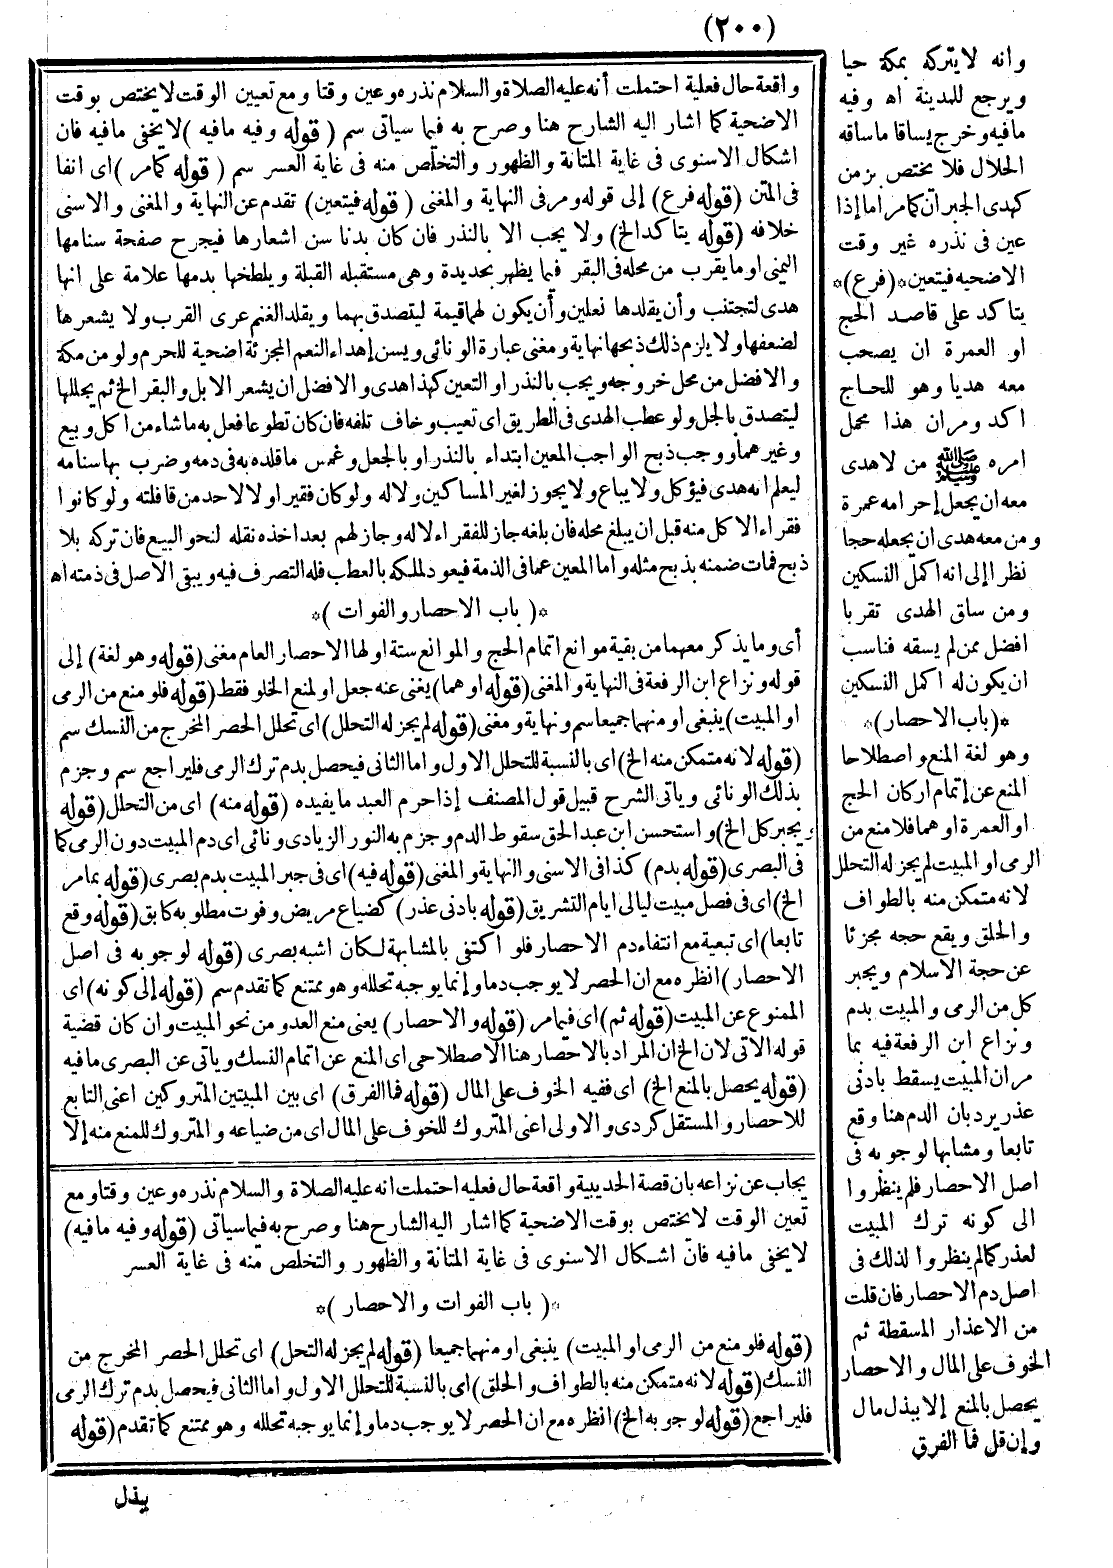 (٢٠٠)
وانه لا يتركه بمكة حيا
ويرجع للمدينة اه وفيه
مافيه وخرج بساقا ماساقه
الحلال فلا يختص بزمن
كهدى الجبران كمامر اما إذا
عين فى نذره غير وقت
الاضحيه فيتعين *(فرع)*
يتاكد على قاصد الحج
او العمرة ان يصحب
معه هديا وهو للحاج
اكد ومران هذا محمل
امره ﷺ من لا هدى
معه ان يجعل إحرامه عمرة
ومن معه هدى ان يجعله حجا
نظرا إلى انه اكمل النسكين
ومن ساق الهدى تقربا
افضل ممن لم يسقه فناسب
ان يكون له اكمل النسكين
*(باب الاحصار)*
وهو لغة المنع واصطلاحا
المنع عن إتمام اركان الحج
او العمرة او هما فلا منع من
الرمى او المبيت لم يجز له التحلل
لانه متمكن منه بالطواف
والحلق ويقع حجه مجزئا
عن حجة الاسلام ويجبر
كل من الرمى والمبيت بدم
ونزاع ابن الرفعة فيه بما
مر ان المبيت يسقط بادنى
عذر يرد بان الدم هنا وقع
تابعا ومشابها لوجوبه فى
اصل الاحصار فلم ينظروا
الى كونه ترك المبيت
لعذر كما لم ينظروا لذلك فى
اصل دم الاحصار فان قلت
من الاعذار المسقطة ثم
الخوف على المال والاحصار
يحصل بالمنع إلا ببذل مال
وإن قل فما الفرق
واقعة حال فعلية احتملت أنه عليه الصلاة والسلام نذره وعين وقتا ومع تعيين الوقت لا يختص بوقت
الاضحية كما اشار اليه الشارح هنا وصرح به فيما سياتى سم (قوله وفيه مافيه) لا يخفى مافيه فان
اشكال الاسنوى فى غاية المتانة والظهور والتخلص منه فى غاية العسر سم (قوله كمامر) اى انفا
فى المتن (قوله فرع) إلى قوله ومر فى النهاية والمغنى (قوله فيتعين) تقدم عن النهاية والمغنى والاسنى
خلافه (قوله يتاكد الخ) ولا يجب الا بالنذر فان كان بدنا سن اشعارها فيجرح صفحة سنامها
اليمنى او ما يقرب من محله فى البقر فيما يظهر بحديدة وهى مستقبله القبلة ويلطخها بدمها علامة على انها
هدى لتجتنب وأن يقلدها نعلين وأن يكون لهما قيمة ليتصدق بهما ويقلد الغنم عرى القرب ولا يشعرها
لضعفها ولا يلزم ذلك ذبحها نهاية ومغنى عبارة الونائى ويسن إهداء النعم المجزئة اضحية للحرم ولو من مكة
والافضل من محل خروجه ويجب بالنذر او التعين كهذا هدى والافضل ان يشعر الابل والبقر الخ ثم يجللها
ليتصدق بالجل ولو عطب الهدى فى الطريق اى تعيب وخاف تلفه فان كان تطوعا فعل به ماشاء من اكل وبيع
وغيرهما ووجب ذبح الواجب المعين ابتداء بالنذر او بالجعل وغمس ماقلده به فى دمه وضرب بها سنامه
ليعلم انه هدى فيؤكل ولا يباع ولا يجوز لغير المساكين ولا له ولو كان فقيرا ولا لاحد من قافلته ولو كانوا
فقراء الاكل منه قبل ان يبلغ محله فان بلغه جاز للفقراء لا له وجاز لهم بعد اخذه نقله لنحو البيع فان تركه بلا
ذبح فمات ضمنه بذبح مثله واما المعين عما فى الذمة فيعود لملكه بالعطب فله التصرف فيه ويبقى الاصل فى ذمته اه
*(باب الاحصار والفوات)*
أى وما يذكر معهما من بقية موانع اتمام الحج والموانع ستة اولها الاحصار العام مغنى (قوله وهو لغة) إلى
قوله ونزاع ابن الرفعة فى النهاية والمغنى (قوله او هما) يغنى عنه جعل او لمنع الخلو فقط (قوله فلو منع من الرمى
او المبيت) ينبغى او منهما جميعا سم ونهاية ومغنى (قوله لم يجز له التحلل) اى تحلل الحصر المخرج من النسك سم
(قوله لانه متمكن منه الخ) اى بالنسبة للتحلل الاول واما الثانى فيحصل بدم ترك الرمى فليراجع سم وجزم
بذلك الونائى وياتى الشرح قبيل قول المصنف إذا حرم العبد ما يفيده (قوله منه) اى من التحلل (قوله
ويجبر كل الخ) واستحسن ابن عبد الحق سقوط الدم وجزم به النور الزيادى ونائى اى دم المبيت دون الرمى كما
فى البصرى (قوله بدم) كذا فى الاسنى والنهاية والمغنى (قوله فيه) اى فى جبر المبيت بدم بصرى (قوله بمامر
الخ) اى فى فصل مبيت ليالى ايام التشريق (قوله بادنى عذر) كضياع مريض وفوت مطلوبه كابق (قوله وقع
تابعا) اى تبعية مع انتفاء دم الاحصار فلو اكتفى بالمشابهة لكان اشبه بصرى (قوله لوجوبه فى اصل
الاحصار) انظره مع ان الحصر لا يوجب دما وإنما يوجبه تحلله وهو ممتنع كما تقدم سم (قوله إلى كونه) اى
الممنوع عن المبيت (قوله ثم) اى فيما مر (قوله والاحصار) يعنى منع العدو من نحو المبيت وان كان قضية
قوله الاتى لان الخ ان المراد بالاحصار هنا الاصطلاحى اى المنع عن اتمام النسك وياتى عن البصرى مافيه
(قوله يحصل بالمنع الخ) اى ففيه الخوف على المال (قوله فما الفرق) اى بين المبيتين المتروكين اعنى التابع
للاحصار والمستقل كردى والاولى اعنى المتروك للخوف على المال اى من ضياعه والمتروك للمنع منه إلا
يجاب عن نزاعه بان قصة الحديبية واقعة حال فعليه احتملت انه عليه الصلاة والسلام نذره وعين وقتا ومع
تعين الوقت لا يختص بوقت الاضحية كما اشار اليه الشارح هنا وصرح به فيما سياتى (قوله وفيه مافيه)
لا يخفى مافيه فان اشكال الاسنوى فى غاية المتانة والظهور والتخلص منه فى غاية العسر
*(باب الفوات والاحصار)*
(قوله فلو منع من الرمى او المبيت) ينبغى او منهما جميعا (قوله لم يجز له التحل) اى تحلل الحصر المخرج من
النسك (قوله لانه متمكن منه بالطواف والحلق) اى بالنسبة للتحلل الاول واما الثانى فيحصل بدم ترك الرمى
فليراجع (قوله لوجوبه الخ) انظره مع ان الحصر لا يوجب دما وإنما يوجبه تحلله وهو ممتنع كما تقدم (قوله
يبذل